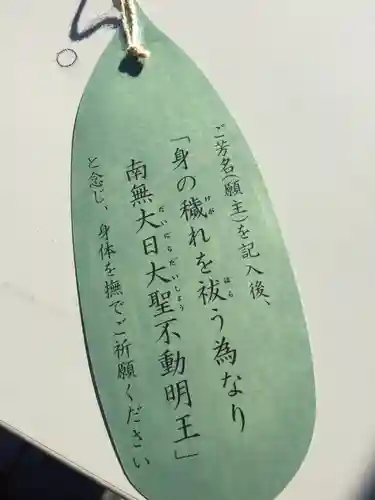 ご芳名(願主)を記入後、
「身の穢れを祓う為なり
南無大日大聖不動明王」
と念し、身体を撫でご祈願ください